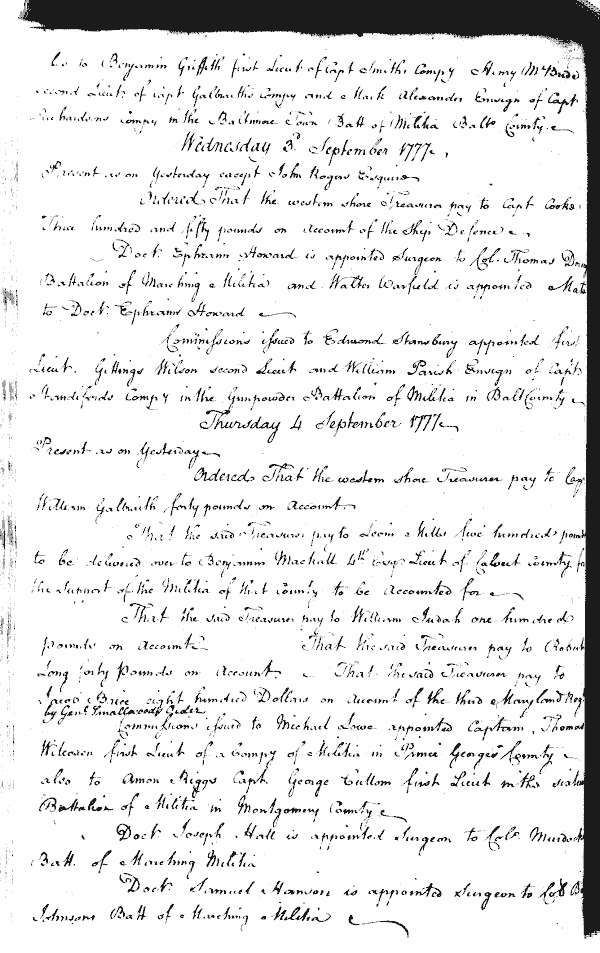 to Benjamin Griffith first Lieut of Capt Smiths Compy Henry McBride
second Lieut. of Capt Galbraiths Compy and Mark Alexander Ensign of Capt
Richardsons Compy in the Baltimore Town Batt of Militia Balto County
Wednesday 3d September 1777
Present as on Yesterday except John Rogers Esquire
Ordered That the western shore Treasurer pay to Capt Cooke
Three hundred and fifty pounds on Account of the Ship Defence
Doct. Ephraim Howard is appointed Surgeon to Col. Thomas
Battalion of Marching Militia and Walter Warfield is appointed Mate
to Doct. Ephraim Howard
Commissions issued to Edmond Stansbury appointed first
Lieut. Gittings Wilson second Lieut and William Parish Ensign of Capt
Standifords Compy in the Gunpowder Battalion of Militia in Balt County
Thursday 4 September 1777
Present as on Yesterday
Ordered That the western shore Treasurer pay to
William Galbraith forty pounds on Account
That the said Treasurer pay to Levin Mills five hundred pounds
to be delivered over to Benjamin Mackall 4th Esqr Lieut of Calvert County for
the support of the Militia of that County to be Accounted for
That the said Treasurer pay to William Judah one hundred
pounds on Account That the said Treasurer pay to Robert
Long forty Pounds on Account That the said Treasurer pay to
Jacob Brice eight hundred Dollars on Account of the third Maryland Reg
by Genl. Smallwoods Order
Commissions issued to Michael Lowe appointed Captain, Thomas
Wilcoxen first Lieut of a Compy of Militia in Prince Georges County
also to Amon Riggs Capt George Cullom first Lieut in the
Battalion of Militia in Montgomery County
Doct. Joseph Hall is appointed Surgeon to Colo. Murdocks
Batt. of Marching Militia
Doct. Samuel Hanson is appointed Surgeon to Colo
Johnsons Batt of Marching Militia